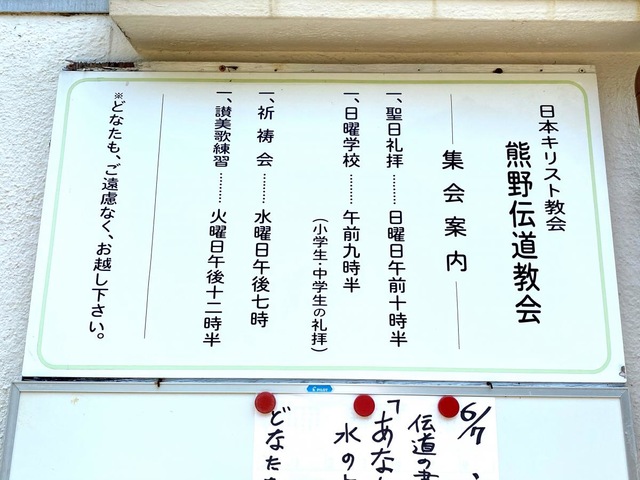 日本キリスト教会
熊野伝道教会
集会案内
一、聖日礼拝……日曜日午前十時半
一、日曜学校……午前九時半
（小学生・中学生の礼拝）
一、祈祷会……水曜日午後七時
一、讃美歌練習……火曜日午後十二時半
※どなたも、ご遠慮なく、お越し下さい。
6/7
伝道の書
「あなた
水の上
どなたも